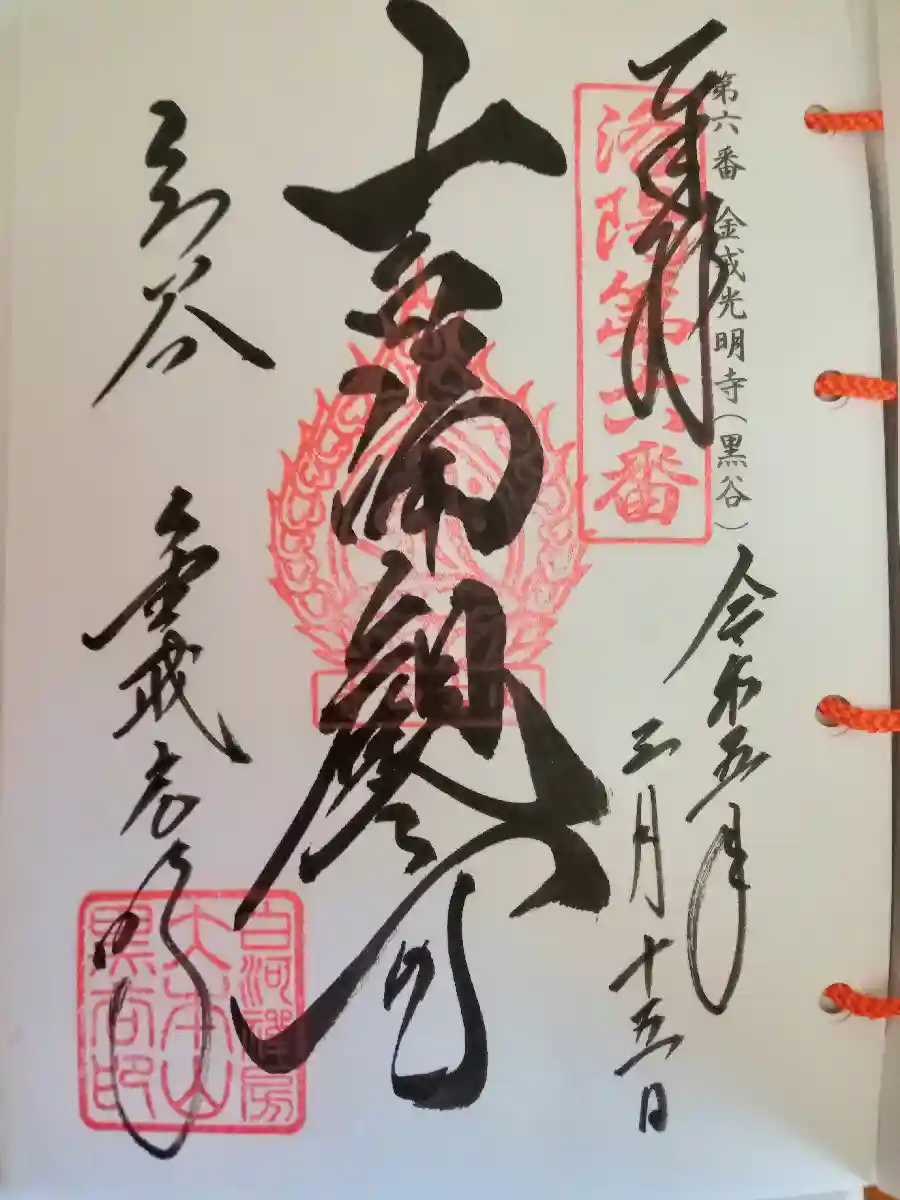 第六番 金戒光明寺(黒谷)
奉拝
洛陽第六番
令和五年
三月十五日
吉備観
谷 金戒光明寺
白河禪房
大本山
黒谷印